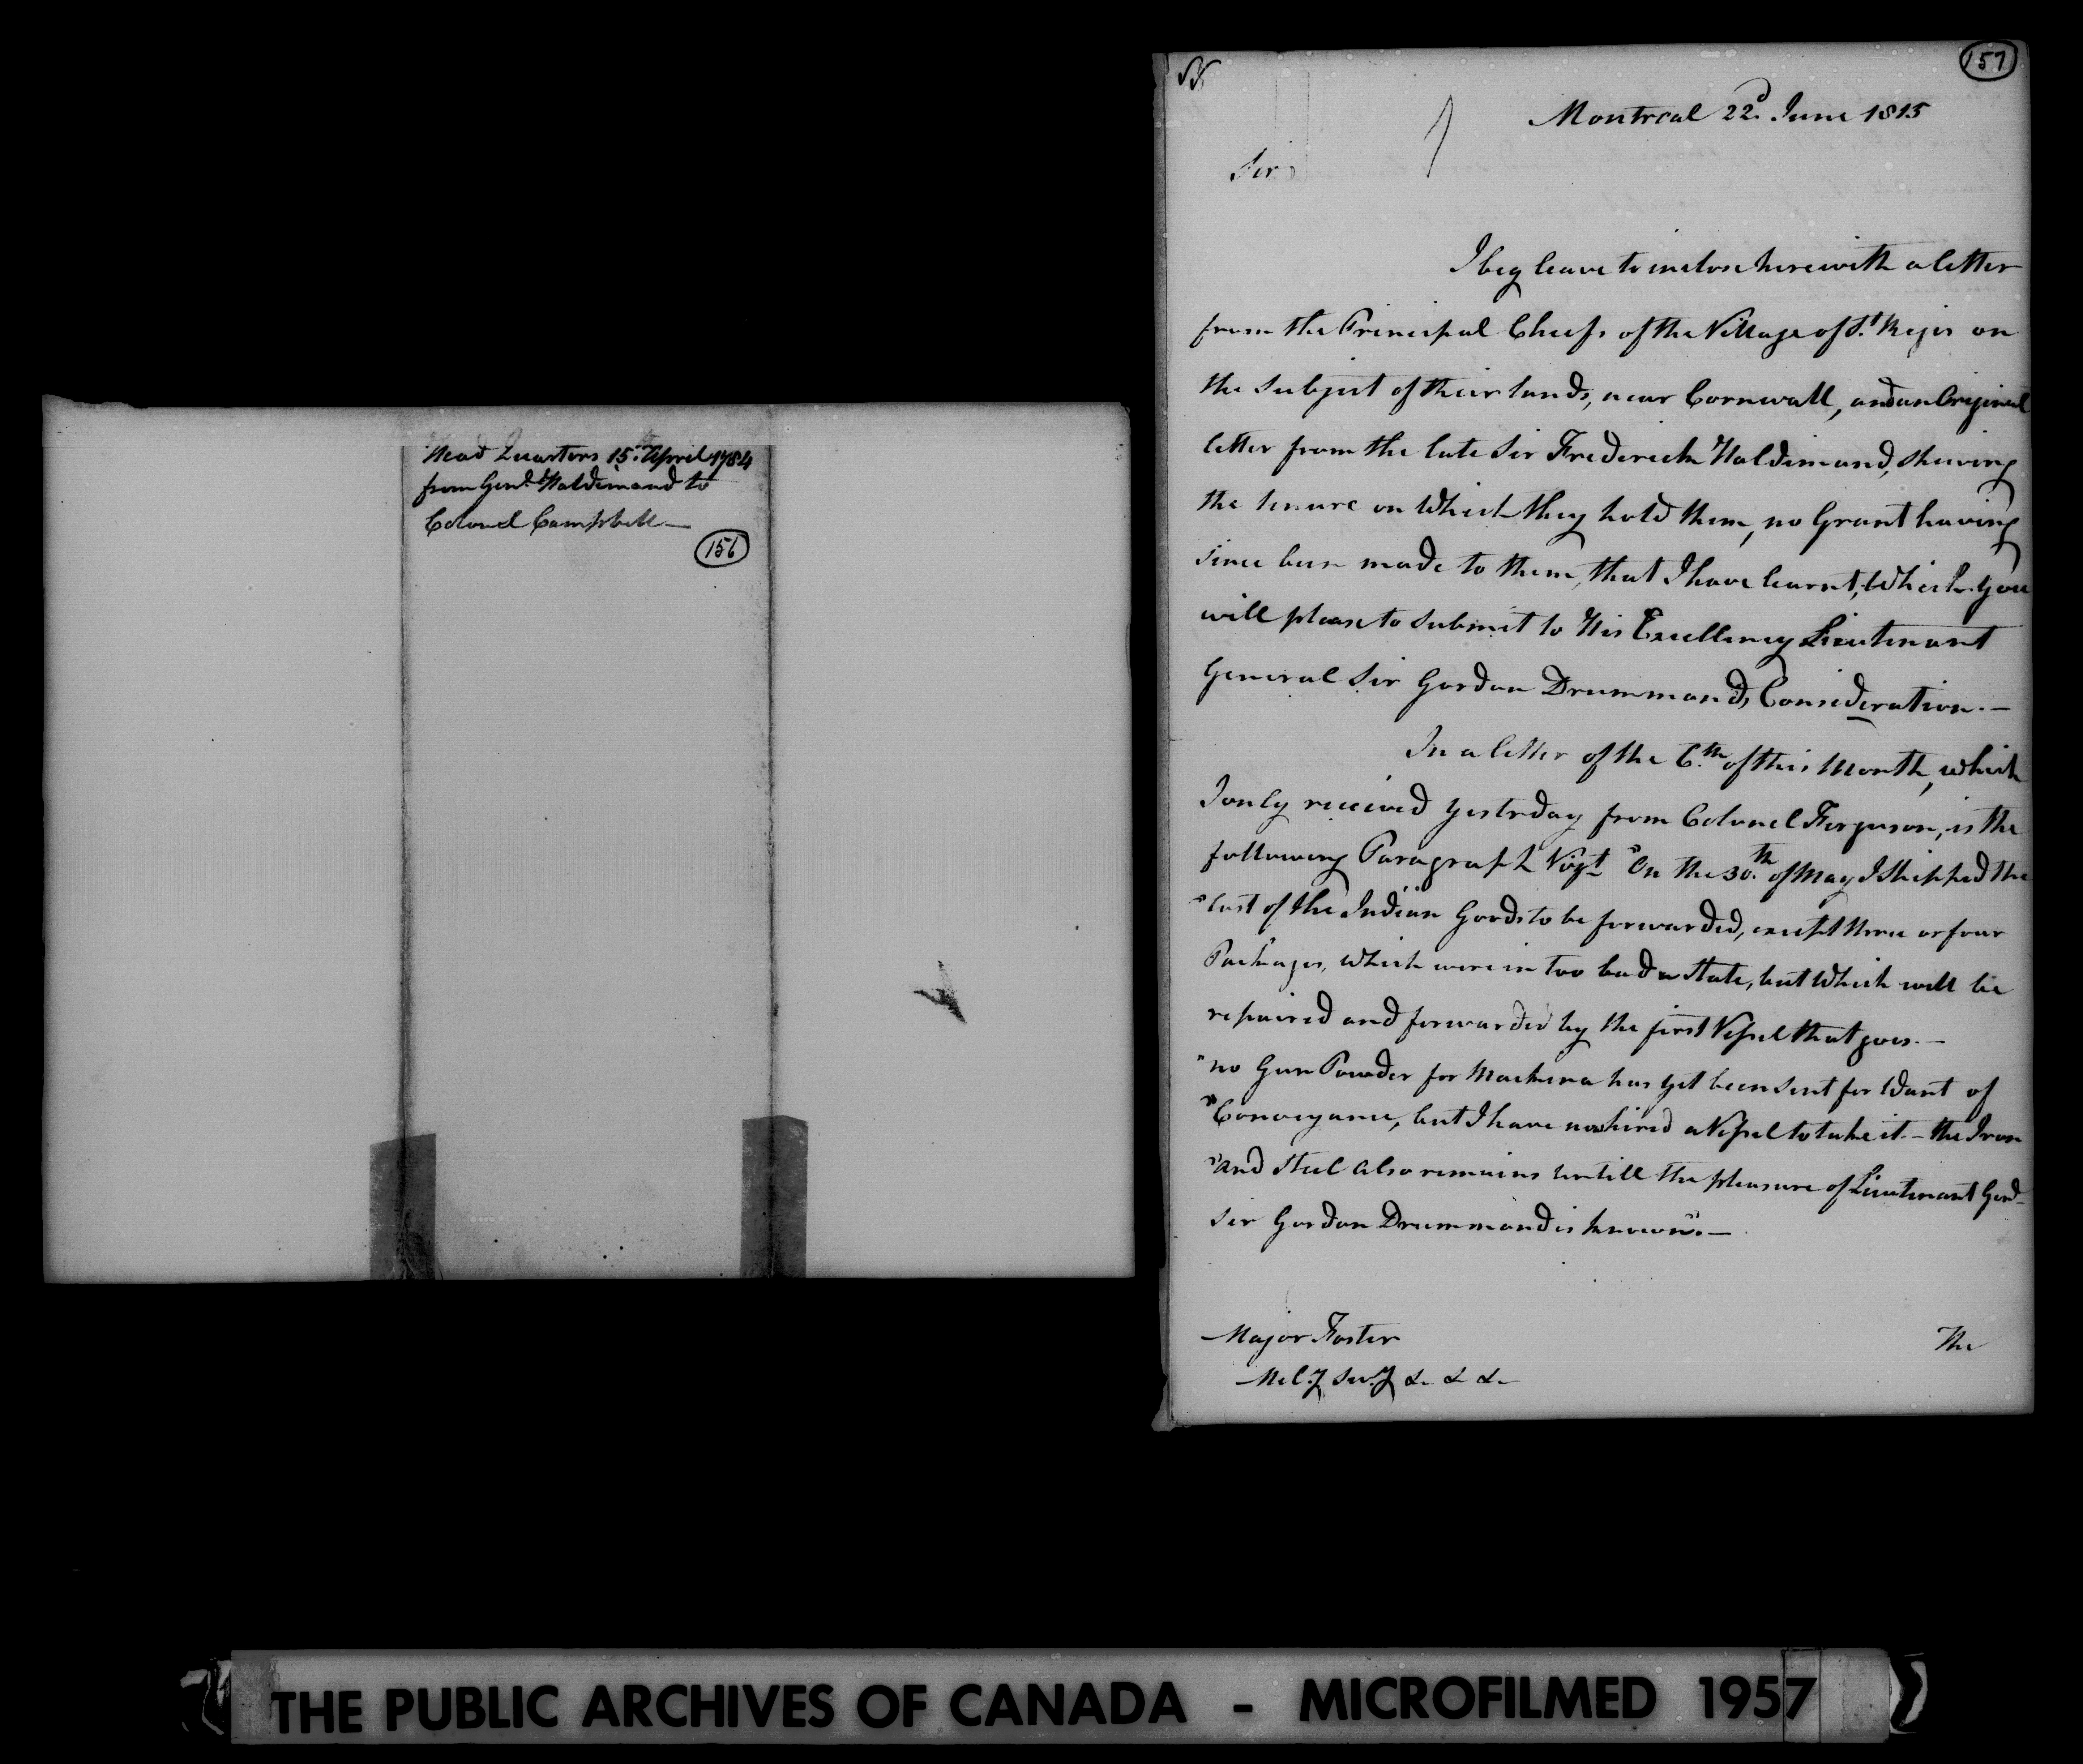 Head Quarters 15th April 1784
from Genl Haldimand to
Colonel Campbell—
156
157
Montreal 22d June 1815
Sir,
I beg leave to inclose herewith a letter
from the Principal Chiefs of the Village of St Regis on
the Subject of their lands, near Cornwall, and an Original
letter from the late Sir Frederick Haldimand, shewing
the tenure on Which they hold them, no Grant having
since been made to them, that I have learnt, Which you
will please to submit to His Excellency Lieutenant
General Sir Gordon Drummonds Consideration.—
In a letter of the 6th of this Month, which
I only received yestrday from Colonel Ferguson, is the
following Paragraph Vizt "On the 30th of May I Shipped the
"last of the Indian Goods to be forwarded, except three or four
Packages, Which were in too bad a State, but Which will be
repaired and forwarded by the first Vessel that goes.—
"no Gun Powder for Mackina has yet been sent for Want of
"Conveyance, but I have now hired a Vessel to take it.— the Iron
"and Steel also remains untill the pleasure of Lieutenant Genl
Sir Gordon Drummond is known".—
Major Foster
Mily Secy &. &. &.
The
THE PUBLIC ARCHIVES OF CANADA - MICROFILMED 1957